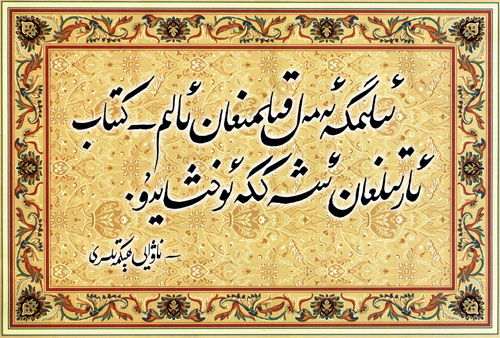 ئىلىمگە ئەمەل قىلمىغان ئالىم – كىتاب
ئارتىلغان ئېشەككە ئوخشايدۇ.
– ناۋايى ھېكمەتلىرى